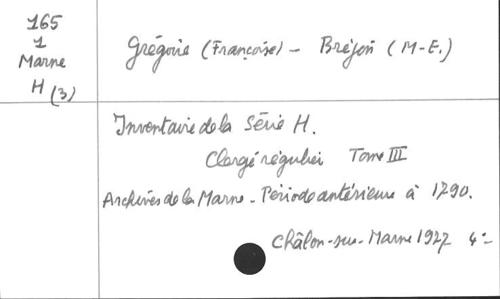 165
1
Marne
H (3)
Grégoire (Françoise) - Bréjon (M-E.)
Inventaire de la Série H.
Clergé régulier Tome III
Archives de la Marne - Période antérieure à 1790.
Châlon-sur-Marne 1927 4°-